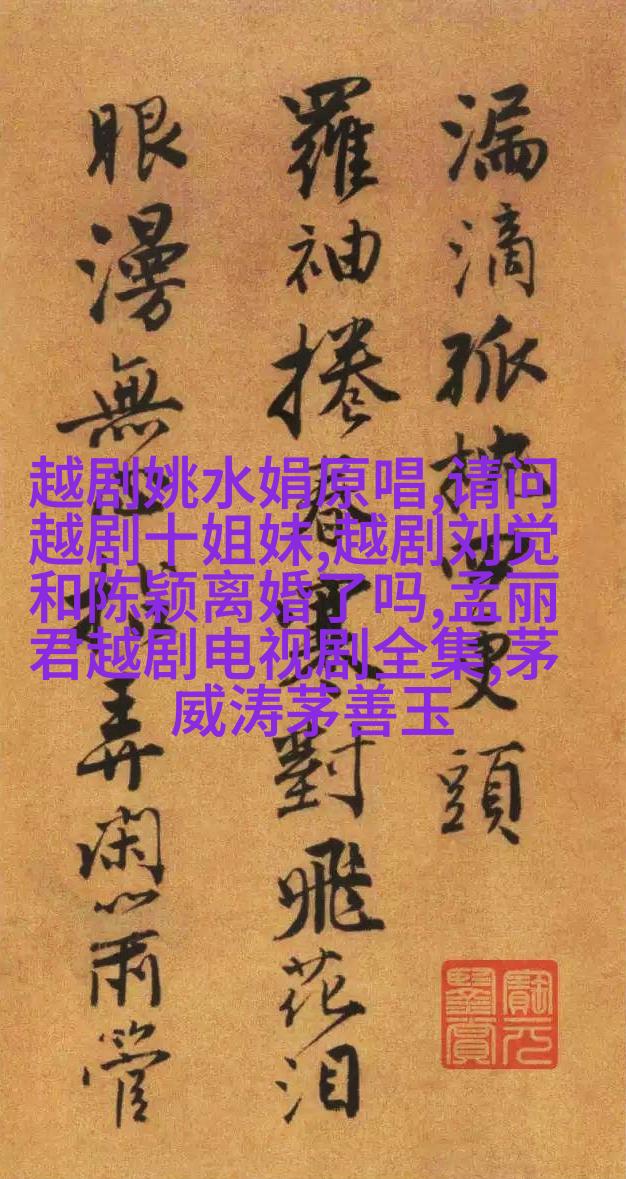 越剧姚水娟原唱,请问
越剧十姐妹,越剧刘觉
和陈颖离婚了吗,孟丽
君越剧电视剧全集,茅
威涛茅善玉
漏滴孤更頭
羅袖捲春對飛花泪
眼漫無弄閑心兩管